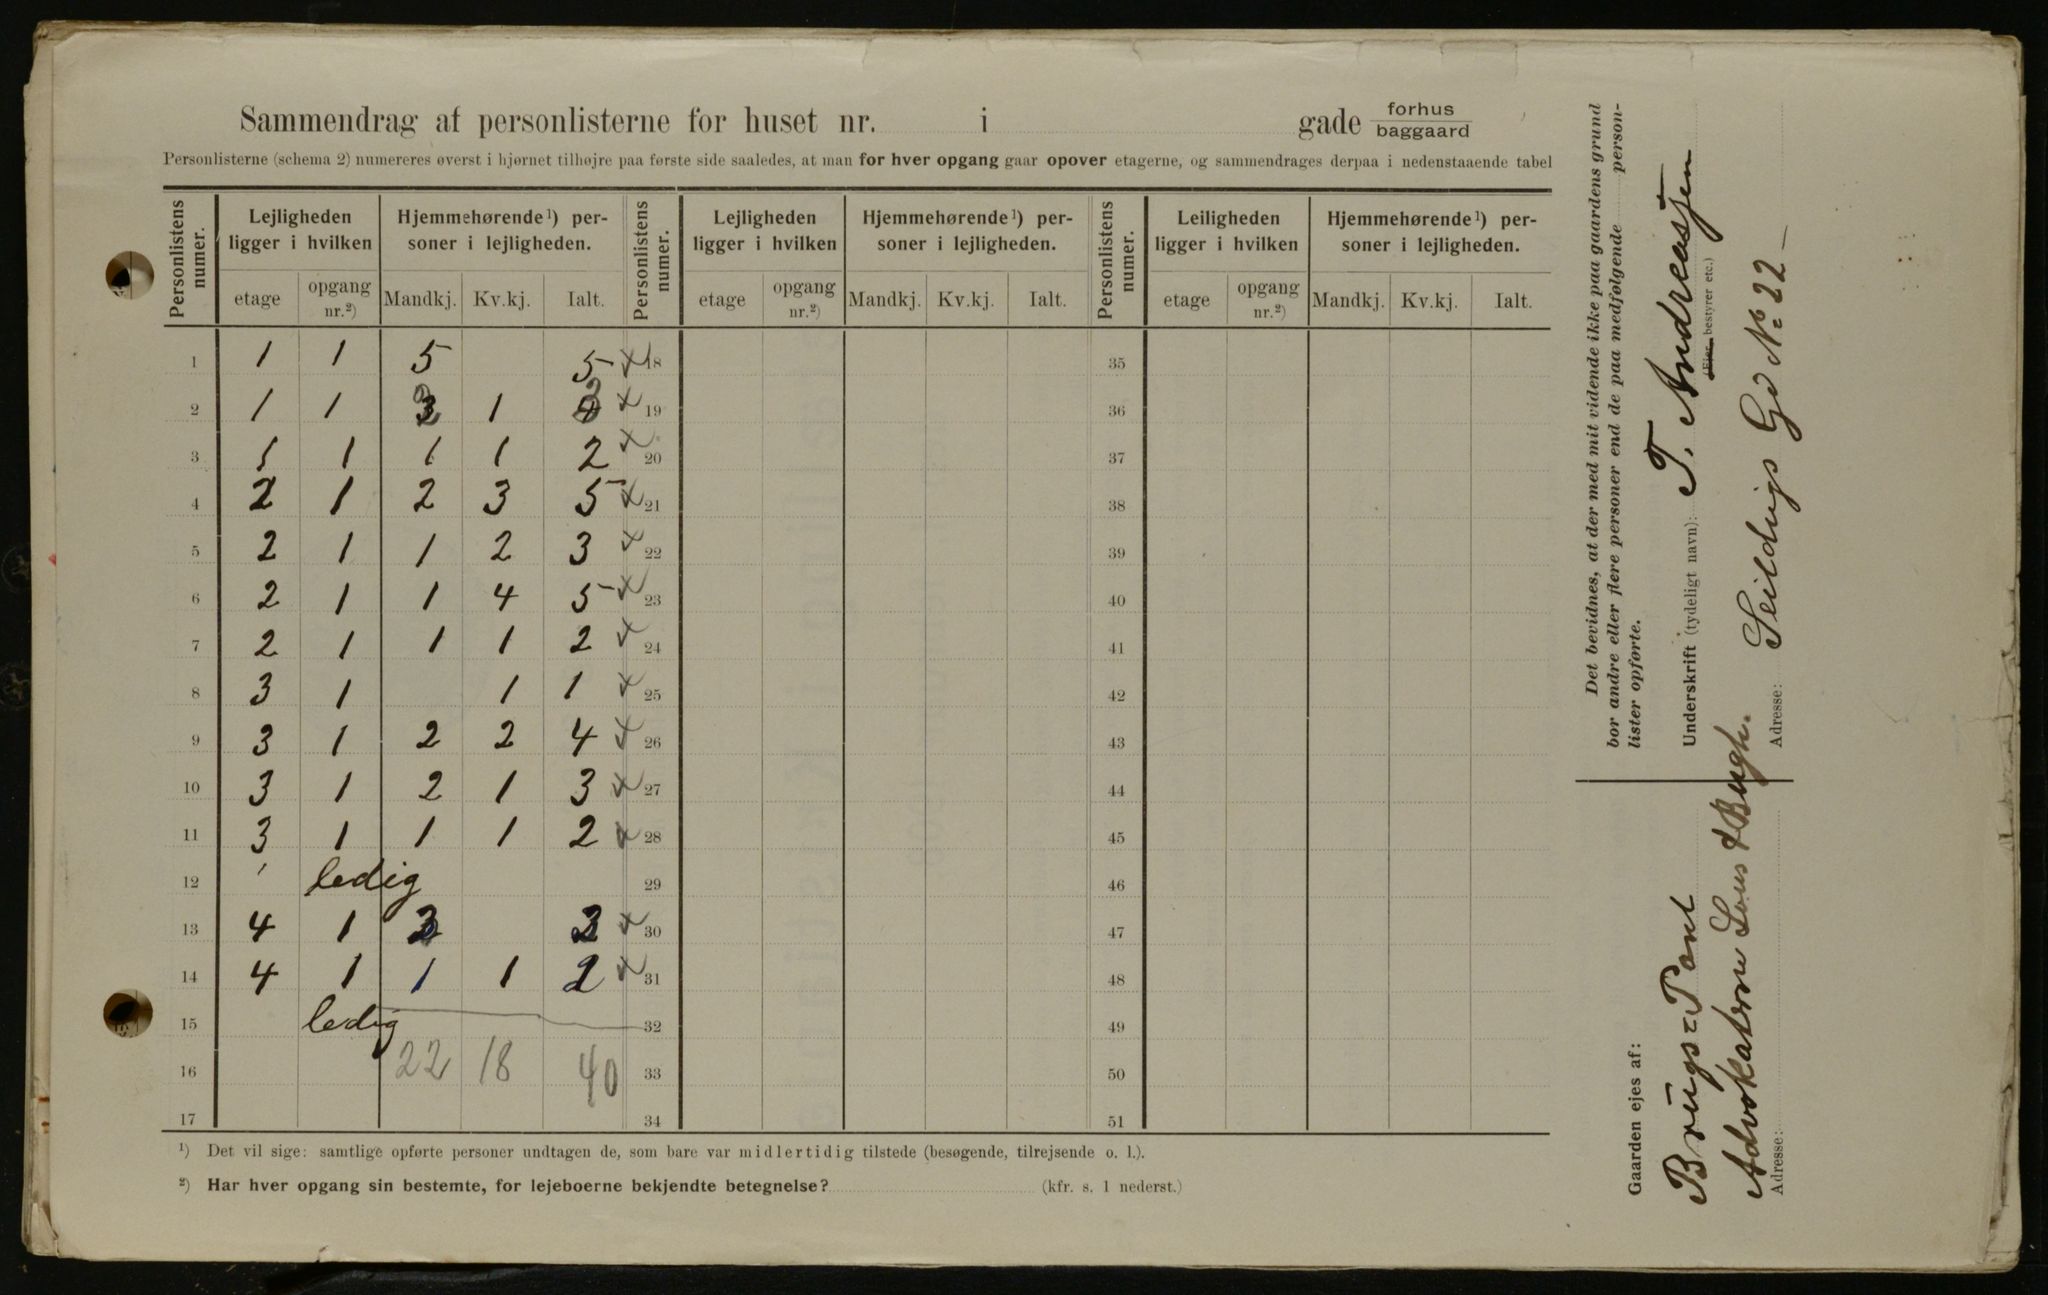 Sammendrag af personlisterne for huset nr. i gade forhus baggaard
Personlisterne (schema 2) numereres øverst i hjørnet tilhøjre paa første side saaledes, at man for hver opgang gaar opover etagerne, og sammendrages derpaa i nedenstaaende tabel
Personlistens numer. Lejligheden ligger i hvilken Hjemmehørende¹) personer i lejligheden. Personlistens numer. Lejligheden ligger i hvilken Hjemmehørende¹) personer i lejligheden. Personlistens numer. Leiligheden ligger i hvilken Hjemmehørende¹) personer i lejligheden.
etage opgang nr.²) Mandkj. Kv.kj. Ialt. etage opgang nr.²) Mandkj. Kv.kj. Ialt. etage opgang nr.²) Mandkj. Kv.kj. Ialt.
1 1 1 5 5 18 35
2 1 1 2 1 3 19 36
3 1 1 1 2 20 37
4 2 1 2 3 5 21 38
5 2 1 1 2 3 22 39
6 2 1 1 4 5 23 40
7 2 1 1 1 2 24 41
8 3 1 1 1 25 42
9 3 1 2 2 4 26 43
10 3 1 2 1 3 27 44
11 3 1 1 1 2 28 45
12 ledig 29 46
13 4 1 30 47
14 4 1 1 1 2 31 48
15 ledig 32 49
16 22 18 40 33 50
17 34 51
¹) Det vil sige: samtlige opførte personer undtagen de, som bare var midlertidig tilstede (besøgende, tilrejsende o. l.).
²) Har hver opgang sin bestemte, for lejeboerne bekjendte betegnelse? (kfr. s. 1 nederst.)
Det bevidnes, at der med mit vidende ikke paa gaardens grund
bor andre eller flere personer end de paa medfølgende person-
lister opførte.
Underskrift (tydeligt navn): T. Andreassen
(Eier, bestyrer etc.)
Adresse: Seildugs Gd No 22
Gaarden ejes af:
Advokaterne
Adresse: